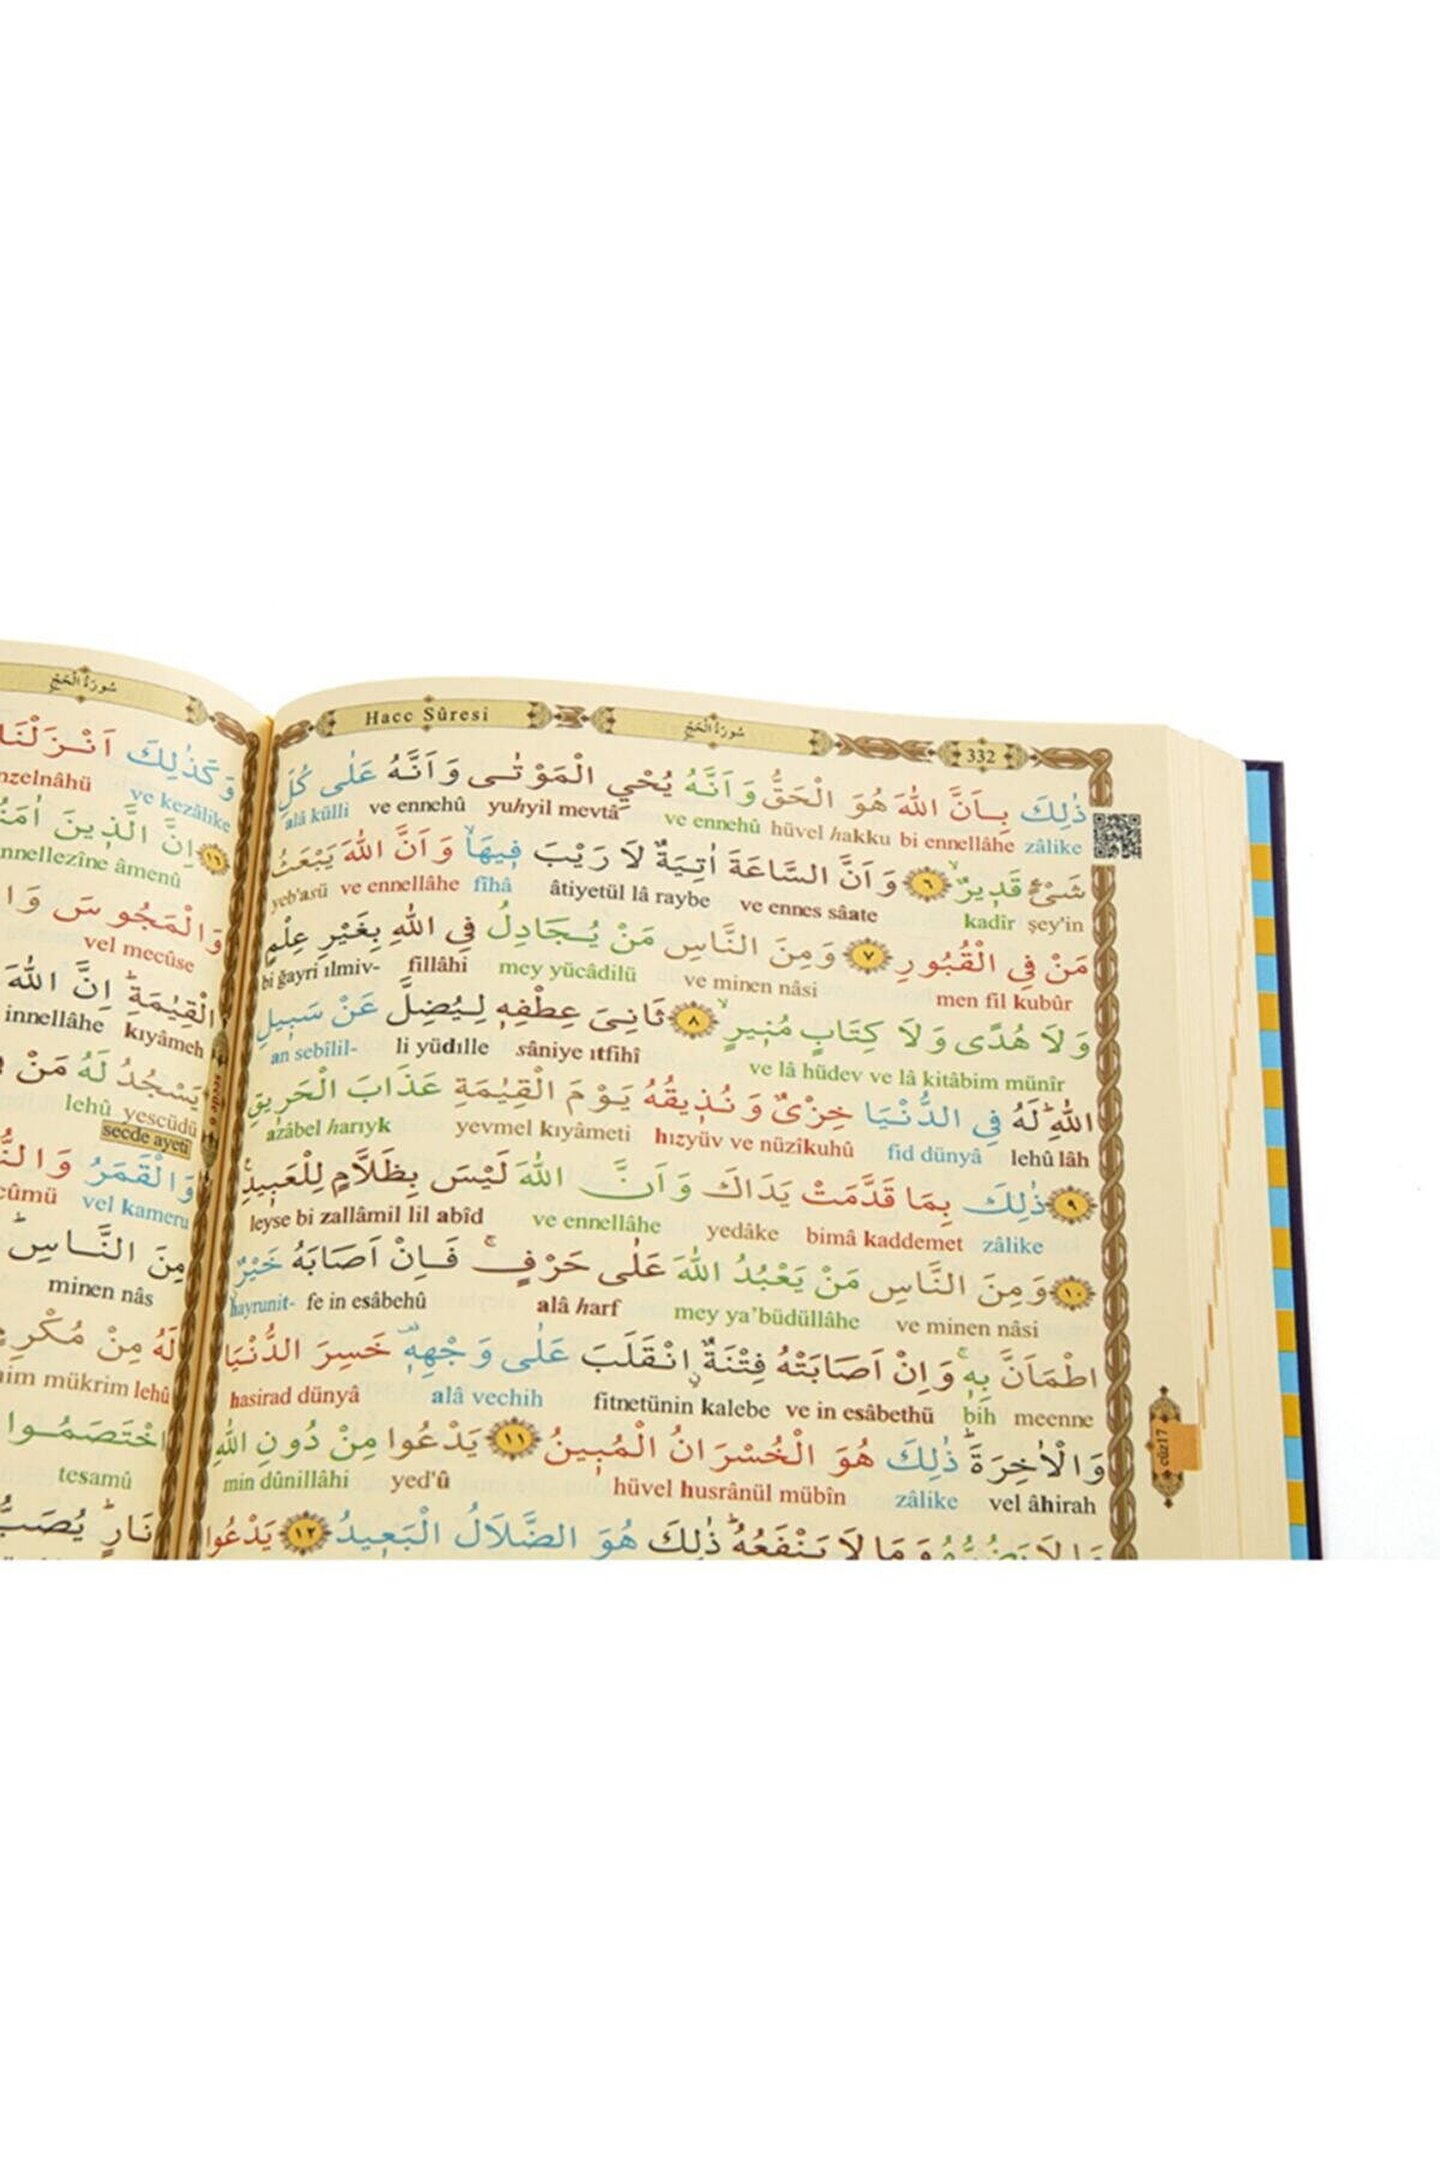 Hacc Sûresi
سُورَةُ الْحَجِّ
332
ذٰلِكَ بِاَنَّ اللّٰهَ هُوَ الْحَقُّ وَاَنَّهُ يُحْيِ الْمَوْتٰى وَاَنَّهُ عَلٰى كُلِّ
zâlike bi ennellâhe hüvel hakku ve ennehû yuhyil mevtâ ve ennehû alâ külli
شَیْءٍ قَدٖيرٌۙ ﴿٦﴾ وَاَنَّ السَّاعَةَ اٰتِيَةٌ لَا رَيْبَ فٖيهَاۙ وَاَنَّ اللّٰهَ يَبْعَثُ
şey'in kadîr ve ennes sâate âtiyetül lâ raybe fîhâ ve ennellâhe yeb'asü
مَنْ فِي الْقُبُورِ ﴿٧﴾ وَمِنَ النَّاسِ مَنْ يُجَادِلُ فِي اللّٰهِ بِغَيْرِ عِلْمٍ
men fil kubûr ve minen nâsi mey yücâdilü fillâhi bi ğayri ılmiv-
وَلَا هُدًى وَلَا كِتَابٍ مُنٖيرٍۙ ﴿٨﴾ ثَانِيَ عِطْفِهٖ لِيُضِلَّ عَنْ سَبٖيلِ
ve lâ hüdev ve lâ kitâbim münîr sâniye ıtfihî li yüdılle an sebîlil-
اللّٰهِؕ لَهُ فِي الدُّنْيَا خِزْىٌ وَنُذٖيقُهُ يَوْمَ الْقِيٰمَةِ عَذَابَ الْحَرٖيقِ
lâh lehû fid dünyâ hızyüv ve nüzîkuhû yevmel kıyâmeti azâbel harıyk
﴿٩﴾ ذٰلِكَ بِمَا قَدَّمَتْ يَدَاكَ وَاَنَّ اللّٰهَ لَيْسَ بِظَلَّامٍ لِلْعَبٖيدِ
zâlike bimâ kaddemet yedâke ve ennellâhe leyse bi zallâmil lil abîd
﴿١٠﴾ وَمِنَ النَّاسِ مَنْ يَعْبُدُ اللّٰهَ عَلٰى حَرْفٍۚ فَاِنْ اَصَابَهُ خَيْرٌ
ve minen nâsi mey ya'büdüllâhe alâ harf fe in esâbehû hayrunit-
اطْمَاَنَّ بِهٖۚ وَاِنْ اَصَابَتْهُ فِتْنَةٌ انْقَلَبَ عَلٰى وَجْهِهٖ خَسِرَ الدُّنْيَا
meenne bih ve in esâbethü fitnetünin kalebe alâ vechih hasirad dünyâ
وَالْاٰخِرَةَؕ ذٰلِكَ هُوَ الْخُسْرَانُ الْمُبٖينُ ﴿١١﴾ يَدْعُوا مِنْ دُونِ اللّٰهِ
vel âhirah zâlike hüvel husrânül mübîn yed'û min dûnillâhi
وَمَا لَا يَنْفَعُهُؕ ذٰلِكَ هُوَ الضَّلَالُ الْبَعٖيدُ ﴿١٢﴾ يَدْعُوا
cüz17
سُورَةُ الْحَجِّ
وَكَذٰلِكَ اَنْزَلْنَا
ve kezâlike nzelnâhü
﴿١٦﴾ اِنَّ الَّذٖينَ
nnellezîne âmenû
وَالْمَجُوسَ
vel mecûse
الْقِيٰمَةِؕ اِنَّ اللّٰهَ
kıyâmeh innellâhe
يَسْجُدُ لَهُ مَنْ
yescüdü lehû
secde ayeti
وَالْقَمَرُ
vel kameru cûmü
مِنَ النَّاسِؕ
minen nâs
لَهُ مِنْ
lehû mükrim
اخْتَصَمُوا
tesamû
نَارٍؕ